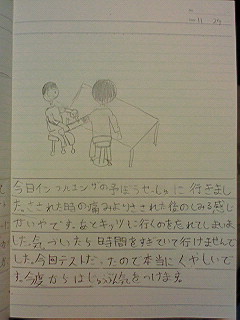 11 24
今日インフルエンザの予ぼうせっしゅに行きまし
た。さされた時の痛みよりさされた後のくみる感じ
がいやです。あとキッズに行くのを忘れてしまいま
した。気づいたら時間をすぎていて行けませんで
した。今回テストだったので本当にくやしいで
す。今度からはしっかり気をつけます。